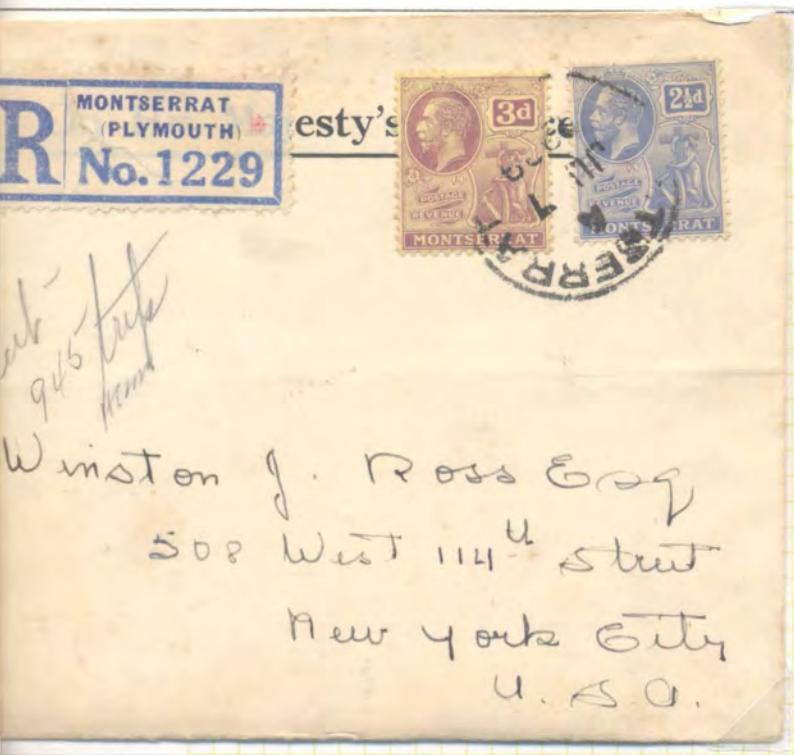 R
MONTSERRAT
(PLYMOUTH)
No. 1229
esty's
3d
POSTAGE
REVENUE
MONTSERRAT
2½d
POSTAGE
REVENUE
MONTSERRAT
SERRAT
945
Winston J. Ross Esq
508 West 114th Street
New York City
U. S. A.